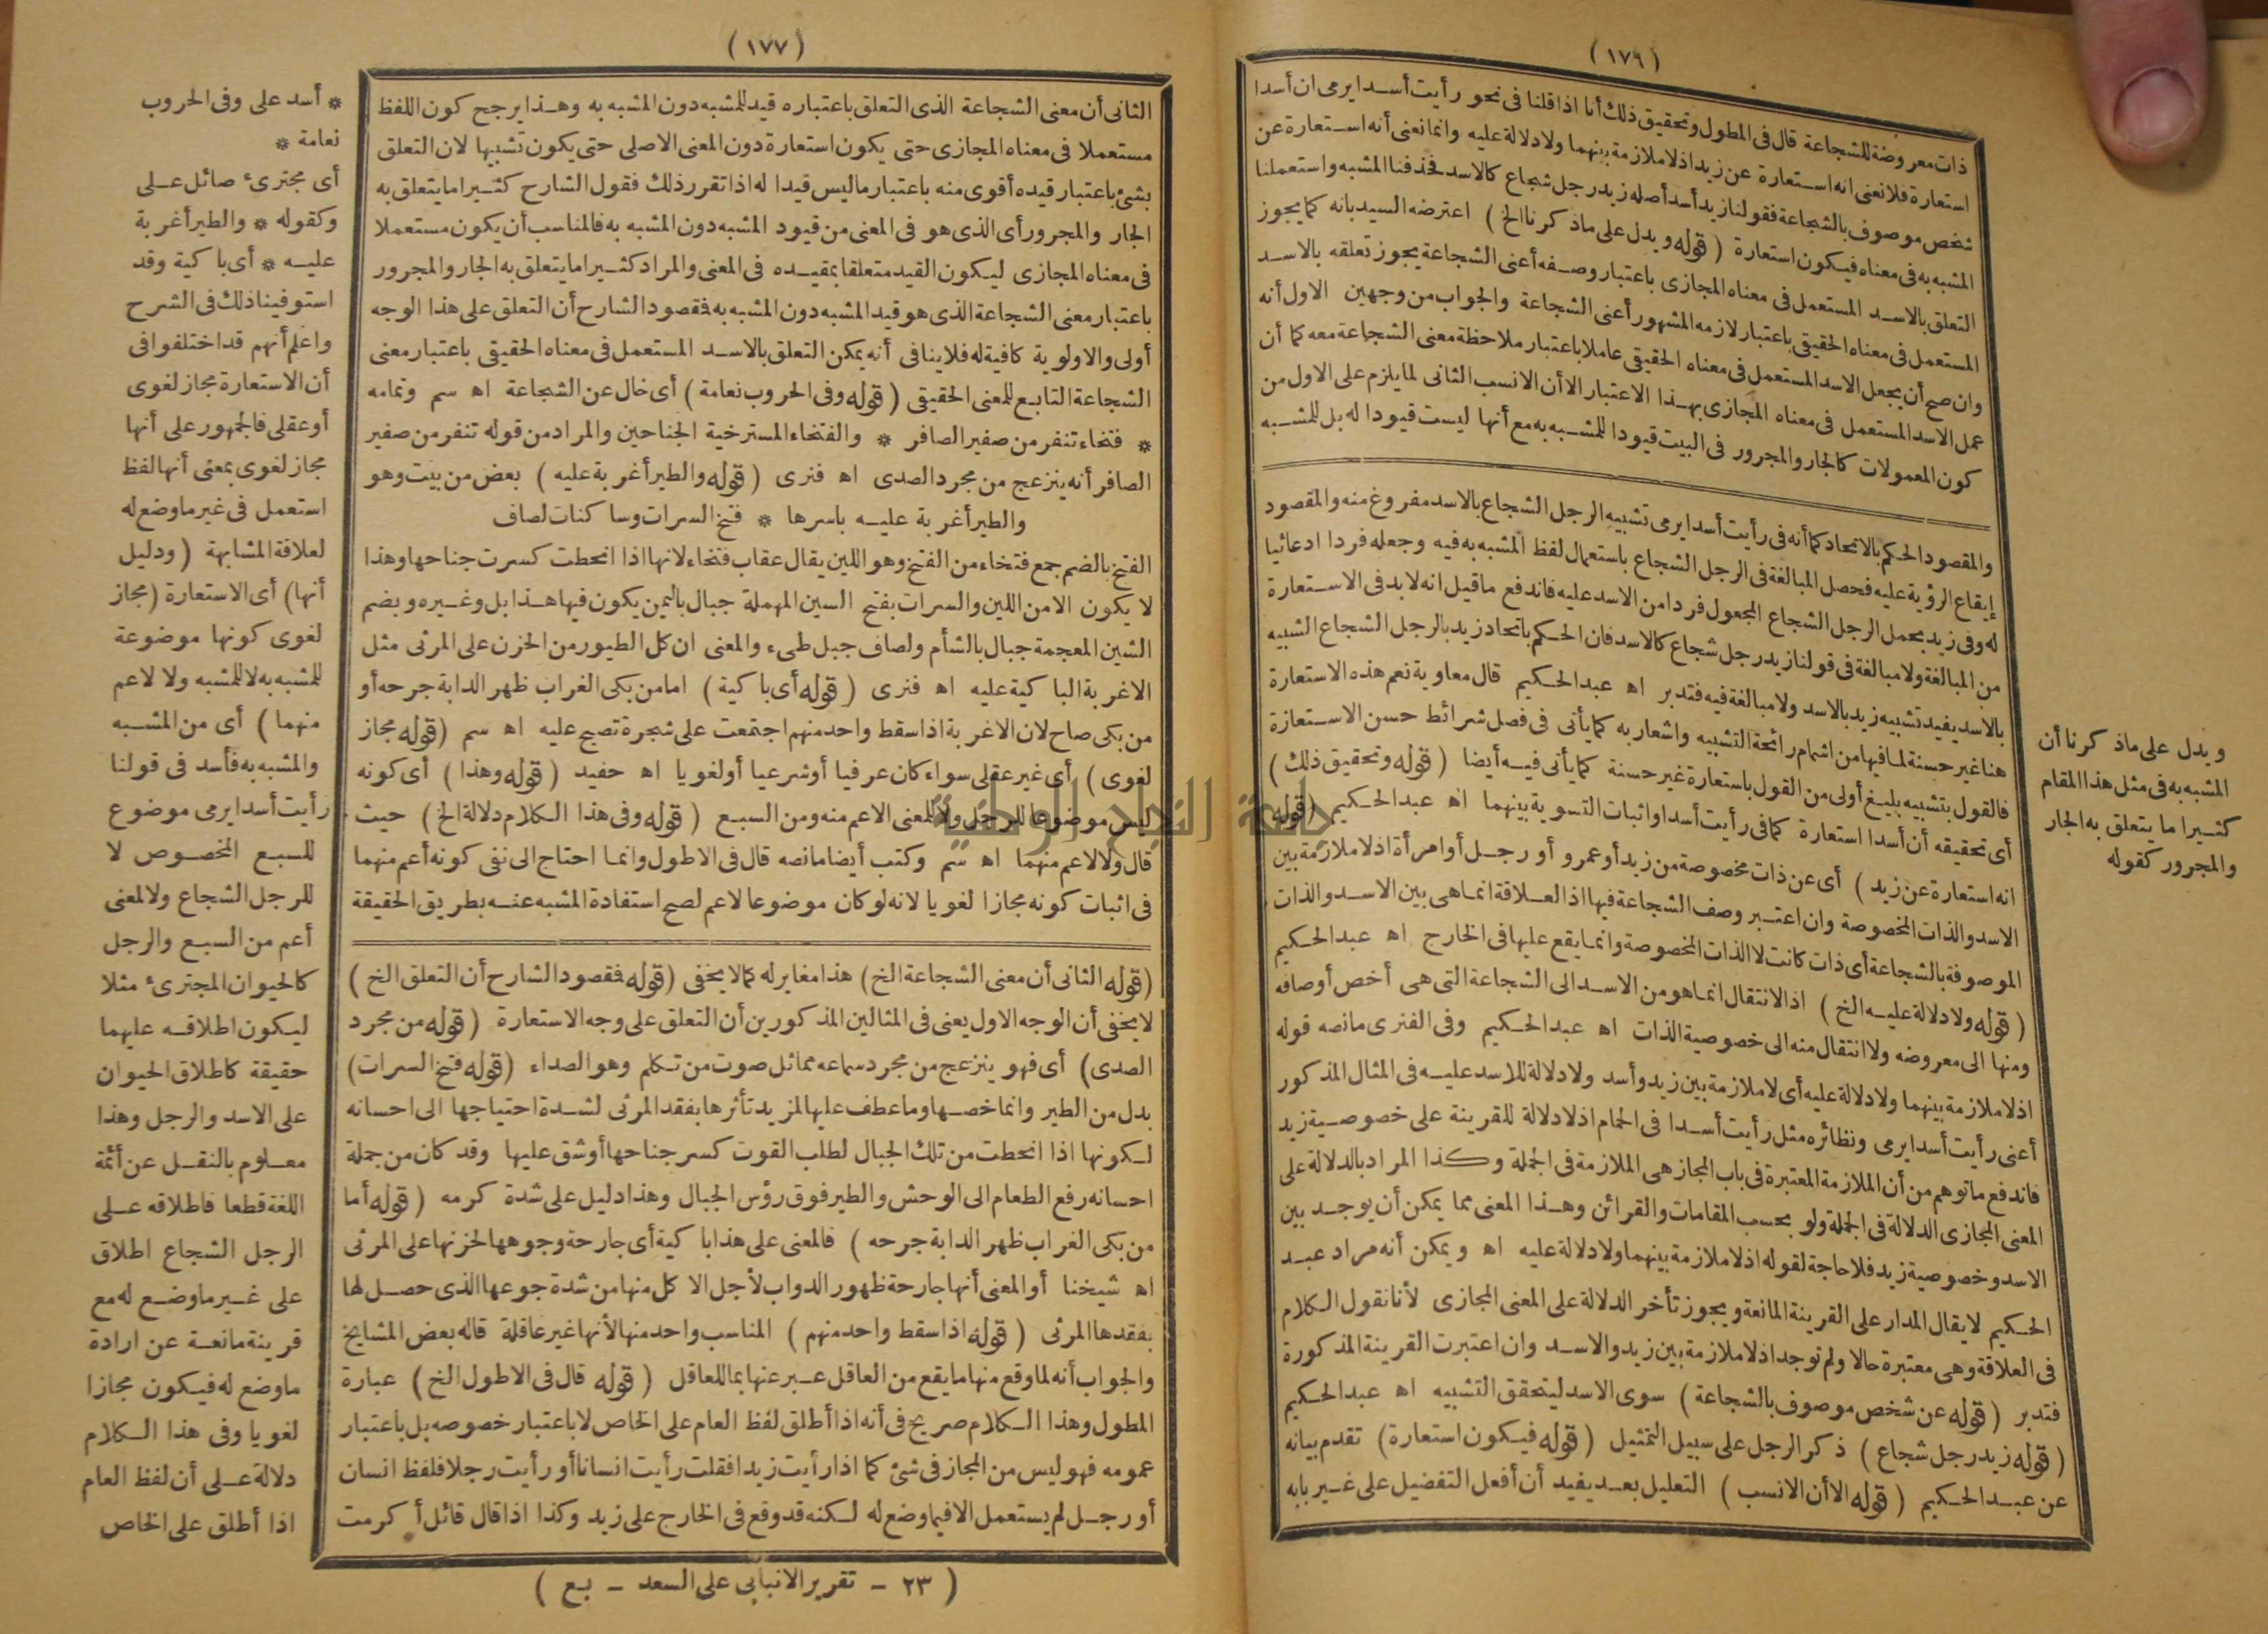 (١٧٦)
ذات معروضة للشجاعة قال في المطول وتحقيق ذلك أنا اذا قلنا في نحو رأيت أسدا يرمى ان أسدا
استعارة فلا نعنى انه استعارة عن زيد اذ لا ملازمة بينهما ولا دلالة عليه وانما نعنى أنه استعارة عن
شخص موصوف بالشجاعة فقولنا زيد أسد أصله زيد رجل شجاع كالاسد فحذفنا المشبه واستعملنا
المشبه به في معناه فيكون استعارة (قوله ويدل على ماذكرنا الخ) اعترضه السيد بانه كما يجوز
التعلق بالاسد المستعمل في معناه المجازى باعتبار وصفه أعنى الشجاعة يجوز تعلقه بالاسد
المستعمل في معناه الحقيقي باعتبار لازمه المشهور أعنى الشجاعة والجواب من وجهين الاول أنه
وان صح أن يجعل الاسد المستعمل في معناه الحقيقي عاملا باعتبار ملاحظة معنى الشجاعة معه كما أن
عمل الاسد المستعمل في معناه المجازى بهذا الاعتبار الا أن الانسب الثانى لما يلزم على الاول من
كون المعمولات كالجار والمجرور في البيت قيودا للمشبه به مع أنها ليست قيودا له بل للمشبه
والمقصود الحكم بالاتحاد كما أنه في رأيت أسدا يرمى تشبيه الرجل الشجاع بالاسد مفروغ منه والمقصود
إيقاع الرؤية عليه فحصل المبالغة في الرجل الشجاع باستعمال لفظ المشبه به فيه وجعله فردا ادعائيا
له وفي زيد بحمل الرجل الشجاع المجعول فردا من الاسد عليه فاندفع ما قيل انه لا بد في الاستعارة
من المبالغة ولا مبالغة في قولنا زيد رجل شجاع كالاسد فان الحكم باتحاد زيد بالرجل الشجاع الشبيه
بالاسد يفيد تشبيه زيد بالاسد ولا مبالغة فيه فتدبر اه عبد الحكيم قال معاوية نعم هذه الاستعارة
هنا غير حسنة لما فيها من اشمام رائحة التشبيه واشعار به كما يأتى في فصل شرائط حسن الاستعارة
فالقول بتشبيه بليغ أولى من القول باستعارة غير حسنة كما يأتى فيه أيضا (قوله وتحقيق ذلك)
أى تحقيقه أن أسدا استعارة كما في رأيت أسدا واثبات التسوية بينهما اه عبد الحكيم (قوله
انه استعارة عن زيد) أى عن ذات مخصوصة من زيد أو عمرو أو رجل أو امرأة اذ لا ملازمة بين
الاسد والذات المخصوصة وان اعتبر وصف الشجاعة فيها اذ العلاقة انما هى بين الاسد والذات
الموصوفة بالشجاعة أى ذات كانت لا الذات المخصوصة وانما يقع عليها في الخارج اه عبد الحكيم
(قوله ولا دلالة عليه الخ) اذ الانتقال انما هو من الاسد الى الشجاعة التى هى أخص أوصافه
ومنها الى معروضه ولا انتقال منه الى خصوصية الذات اه عبد الحكيم وفي الفنرى مانصه قوله
اذ لا ملازمة بينهما ولا دلالة عليه أى لا ملازمة بين زيد وأسد ولا دلالة للاسد عليه في المثال المذكور
أعنى رأيت أسدا يرمى ونظائره مثل رأيت أسدا في الحمام اذ لا دلالة للقرينة على خصوصية زيد
فاندفع ما توهم من أن الملازمة المعتبرة في باب المجاز هى الملازمة في الجملة وكذا المراد بالدلالة على
المعنى المجازى الدلالة في الجملة ولو بحسب المقامات والقرائن وهذا المعنى مما يمكن أن يوجد بين
الاسد وخصوصية زيد فلا حاجة لقوله اذ لا ملازمة بينهما ولا دلالة عليه اه ويمكن أنه مراد عبد
الحكيم لا يقال المدار على القرينة المانعة ويجوز تأخر الدلالة على المعنى المجازى لأنا نقول الكلام
في العلاقة وهى معتبرة حالا ولم توجد اذ لا ملازمة بين زيد والاسد وان اعتبرت القرينة المذكورة
فتدبر (قوله عن شخص موصوف بالشجاعة) سوى الاسد ليتحقق التشبيه اه عبد الحكيم
(قوله زيد رجل شجاع) ذكر الرجل على سبيل التمثيل (قوله فيكون استعارة) تقدم بيانه
عن عبد الحكيم (قوله الا أن الانسب) التعليل بعد يفيد أن أفعل التفضيل على غير بابه
ويدل على ماذكرنا أن
المشبه به في مثل هذا المقام
كثيرا ما يتعلق به الجار
والمجرور كقوله
(١٧٧)
الثانى أن معنى الشجاعة الذى التعلق باعتباره قيد للمشبه دون المشبه به وهذا يرجح كون اللفظ
مستعملا في معناه المجازى حتى يكون استعارة دون المعنى الاصلى حتى يكون تشبيها لان التعلق
بشئ باعتبار قيده أقوى منه باعتبار ماليس قيدا له اذا تقرر ذلك فقول الشارح كثيرا ما يتعلق به
الجار والمجرور أى الذى هو في المعنى من قيود المشبه دون المشبه به فالمناسب أن يكون مستعملا
في معناه المجازى ليكون القيد متعلقا بمقيده في المعنى والمراد كثيرا ما يتعلق به الجار والمجرور
باعتبار معنى الشجاعة الذى هو قيد المشبه دون المشبه به فقصود الشارح أن التعلق على هذا الوجه
أولى والاولوية كافية له فلا ينافى أنه يمكن التعلق بالاسد المستعمل في معناه الحقيقي باعتبار معنى
الشجاعة التابع للمعنى الحقيقي (قوله وفي الحروب نعامة) أى خال عن الشجاعة اه سم وتمامه
* فتخاء تنفر من صفير الصافر * والفتخاء المسترخية الجناحين والمراد من قوله تنفر من صفير
الصافر أنه ينزعج من مجرد الصدى اه فنرى (قوله والطير أغربة عليه) بعض من بيت وهو
والطير أغربة عليه باسرها * فتخ السرات وساكنات لصاف
الفتخ بالضم جمع فتخاء من الفتخ وهو اللين يقال عقاب فتخاء لانها اذا انحطت كسرت جناحها وهذا
لا يكون الا من اللين والسرات بفتح السين المهملة جبال باليمن يكون فيها هذا بل وغيره وبضم
الشين المعجمة جبال بالشأم ولصاف جبل طىء والمعنى ان كل الطيور من الحزن على المرثى مثل
الاغربة الباكية عليه اه فنرى (قوله أى باكية) اما من بكى الغراب ظهر الدابة جرحه أو
من بكى صاح لان الاغربة اذا سقط واحد منهم اجتمعت على شجرة تصيح عليه اه سم (قوله مجاز
لغوى) أى غير عقلى سواء كان عرفيا أو شرعيا أو لغويا اه حفيد (قوله وهذا) أى كونه
ليس موضوعا للرجل ولا للمعنى الاعم منه ومن السبع (قوله وفي هذا الكلام دلالة الخ) حيث
قال ولا لاعم منهما اه سم وكتب أيضا مانصه قال في الاطول وانما احتاج الى نفى كونه أعم منهما
في اثبات كونه مجازا لغويا لانه لو كان موضوعا لاعم لصح استفادة المشبه عنه بطريق الحقيقة
(قوله الثانى أن معنى الشجاعة الخ) هذا مغاير له كما لا يخفى (قوله فقصود الشارح أن التعلق الخ)
لا يخفى أن الوجه الاول يعنى في المثالين المذكورين أن التعلق على وجه الاستعارة (قوله من مجرد
الصدى) أى فهو ينزعج من مجرد سماعه مماثل صوت من تكلم وهو الصداء (قوله فتخ السرات)
بدل من الطير وانما خصها وما عطف عليها لمزيد تأثرها بفقد المرثى لشدة احتياجها الى احسانه
لكونها اذا انحطت من تلك الجبال لطلب القوت كسر جناحها أو شق عليها وقد كان من جملة
احسانه رفع الطعام الى الوحش والطير فوق رؤس الجبال وهذا دليل على شدة كرمه (قوله أما
من بكى الغراب ظهر الدابة جرحه) فالمعنى على هذا باكية أى جارحة وجوهها لحزنها على المرثى
اه شيخنا أو المعنى أنها جارحة ظهور الدواب لأجل الاكل منها من شدة جوعها الذى حصل لها
بفقدها المرثى (قوله اذا سقط واحد منهم) المناسب واحد منها لأنها غير عاقلة قاله بعض المشايخ
والجواب أنه لما وقع منها ما يقع من العاقل عبر عنها بما للعاقل (قوله قال في الاطول الخ) عبارة
المطول وهذا الكلام صريح في أنه اذا أطلق لفظ العام على الخاص لا باعتبار خصوصه بل باعتبار
عمومه فهو ليس من المجاز في شئ كما اذا رأيت زيدا فقلت رأيت انسانا أو رأيت رجلا فلفظ انسان
أو رجل لم يستعمل الا فيما وضع له لكنه قد وقع في الخارج على زيد وكذا اذا قال قائل أكرمت
* أسد على وفي الحروب
نعامة *
أى مجترئ صائل على
وكقوله * والطير أغربة
عليه * أى باكية وقد
استوفينا ذلك في الشرح
واعلم أنهم قد اختلفوا في
أن الاستعارة مجاز لغوى
أو عقلى فالجمهور على أنها
مجاز لغوى بمعنى أنها لفظ
استعمل في غير ما وضع له
لعلاقة المشابهة (ودليل
أنها) أى الاستعارة (مجاز
لغوى كونها موضوعة
للمشبه به لا للمشبه ولا لاعم
منهما) أى من المشبه
والمشبه به فأسد في قولنا
رأيت أسدا يرمى موضوع
للسبع المخصوص لا
للرجل الشجاع ولا لمعنى
أعم من السبع والرجل
كالحيوان المجترئ مثلا
ليكون اطلاقه عليهما
حقيقة كاطلاق الحيوان
على الاسد والرجل وهذا
معلوم بالنقل عن أئمة
اللغة قطعا فاطلاقه على
الرجل الشجاع اطلاق
على غير ما وضع له مع
قرينة مانعة عن ارادة
ماوضع له فيكون مجازا
لغويا وفي هذا الكلام
دلالة على أن لفظ العام
اذا أطلق على الخاص
(٢٣ - تقرير الانبابى على السعد - بع)
جامعة النجاح الوطنية